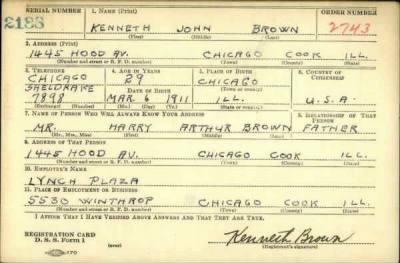 SERIAL NUMBER 1. NAME (Print) ORDER NUMBER
2183 KENNETH JOHN BROWN 2743
(First) (Middle) (Last)
2. ADDRESS (Print)
1445 HOOD AV. CHICAGO COOK ILL.
(Number and street or R. F. D. number) (Town) (County) (State)
3. TELEPHONE 4. AGE IN YEARS 5. PLACE OF BIRTH 6. COUNTRY OF CITIZENSHIP
CHICAGO 29 CHICAGO
SHELDRAKE DATE OF BIRTH (Town or county)
7898 MAR. 6 1911 ILL. U.S.A.
(Exchange) (Number) (Mo.) (Day) (Yr.) (State or country)
7. NAME OF PERSON WHO WILL ALWAYS KNOW YOUR ADDRESS 8. RELATIONSHIP OF THAT PERSON
MR. HARRY ARTHUR BROWN FATHER
(Mr., Mrs., Miss) (First) (Middle) (Last)
9. ADDRESS OF THAT PERSON
1445 HOOD AV. CHICAGO COOK ILL.
(Number and street or R. F. D. number) (Town) (County) (State)
10. EMPLOYER'S NAME
LYNCH PLAZA
11. PLACE OF EMPLOYMENT OR BUSINESS
5530 WINTHROP CHICAGO COOK ILL
(Number and street or R. F. D. number) (Town) (County) (State)
I AFFIRM THAT I HAVE VERIFIED ABOVE ANSWERS AND THAT THEY ARE TRUE.
REGISTRATION CARD
D. S. S. Form 1 (over) Kenneth Brown
(Registrant's signature)